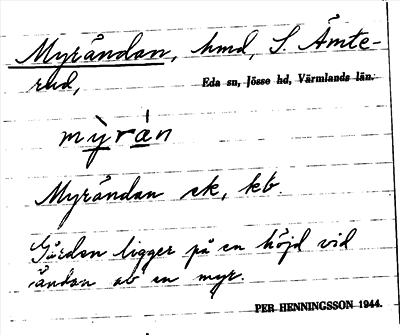 Myråndan, hmd, S. Ämte-
rud,
Eda sn, Jösse hd, Värmlands län.
mỳrán
Myråndan ek, kb.
Gården ligger på en höjd vid
ändan av en myr.
PER HENNINGSSON 1944.